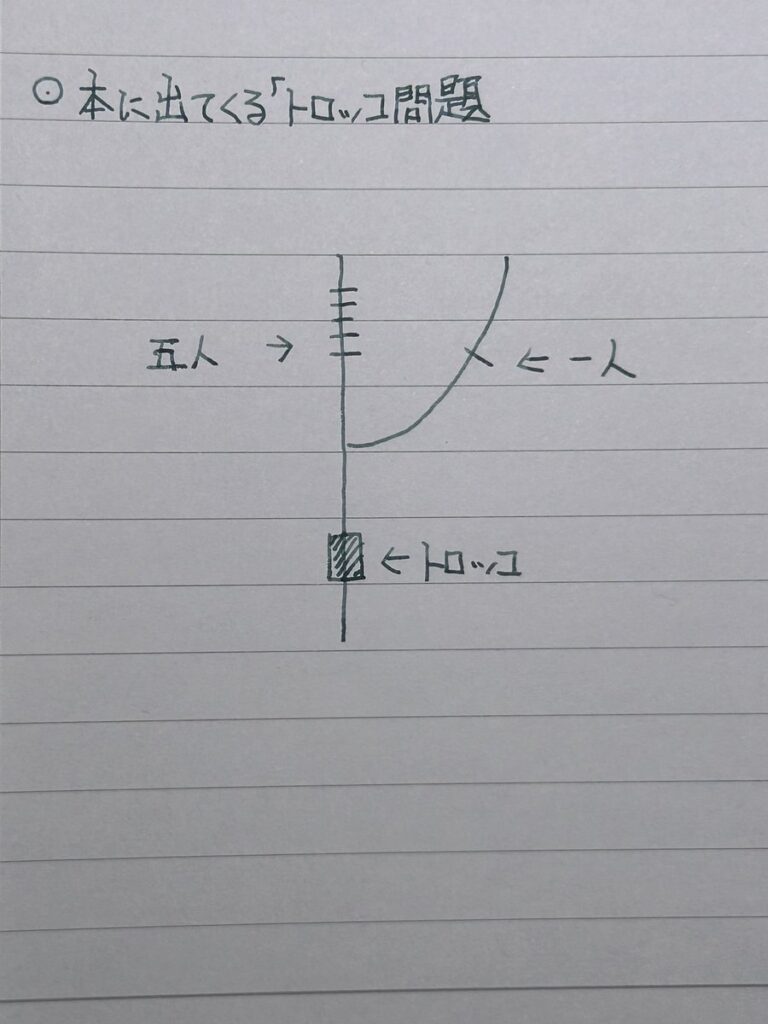 ⊙ 本に出てくる「トロッコ問題
五人 → ← 一人
← トロッコ